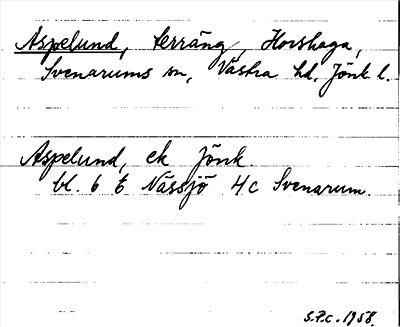 Aspelund, terräng, Horshaga,
Svenarums sn, Västra hd, Jönk l.
Aspelund, ek Jönk.
bl. 6 t Nässjö 4c Svenarum.
S.P.C. 1958